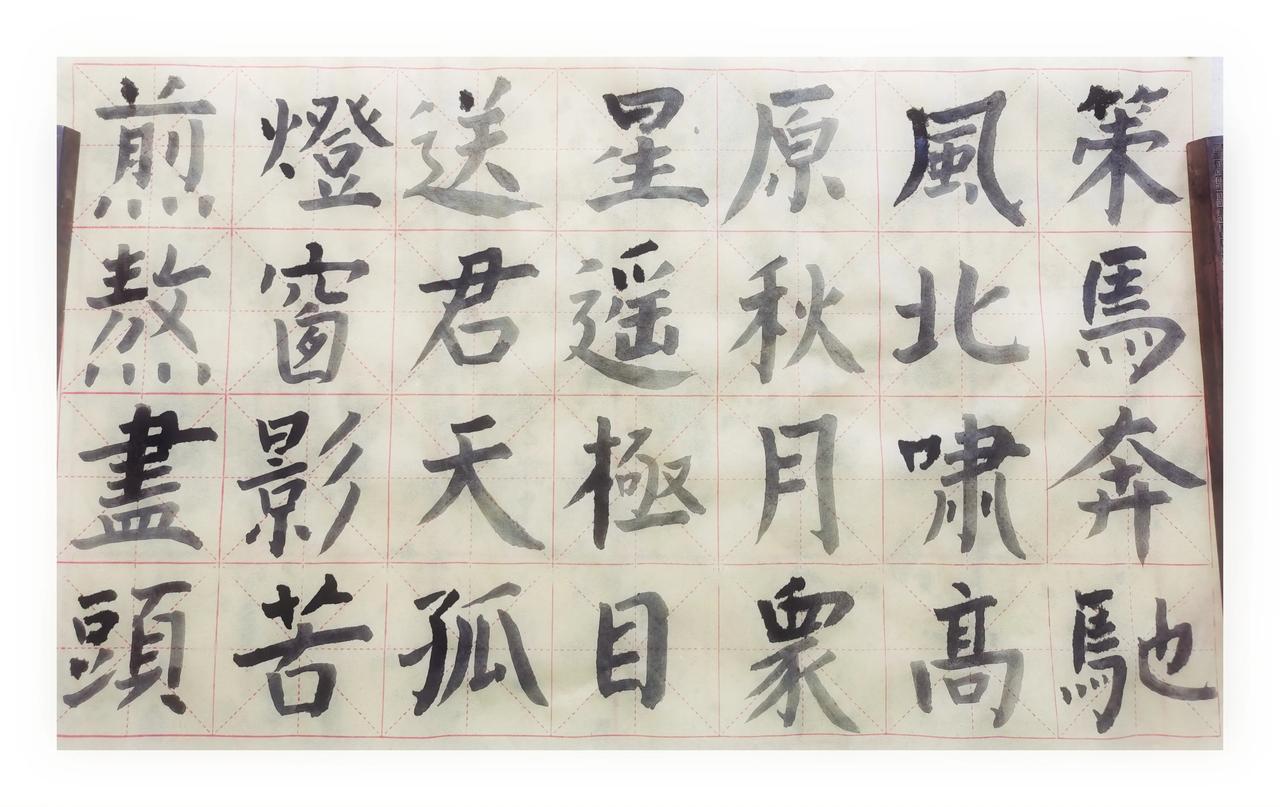 策馬奔馳
風北嘯髙
原秋月眾
星遥極目
送君天孤
燈窗影苦
煎熬盡頭